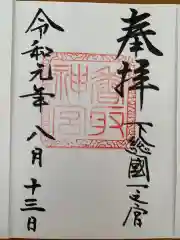 奉拝
下総國一之宮
香取神宮
令和元年八月十三日